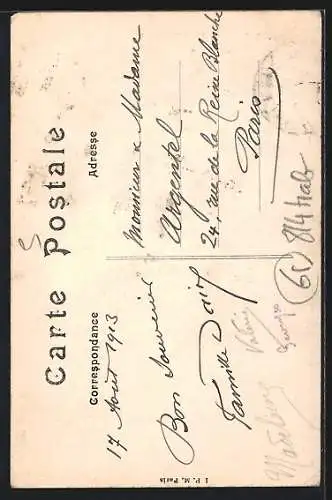 Carte Postale
Correspondance
Adresse
17 Août 1913
Bon Souvenir
Famille
Monsieur & Madame
Argentel
24, rue de la Reine Blanche
Paris
65
814 hab
I. P. M. Paris